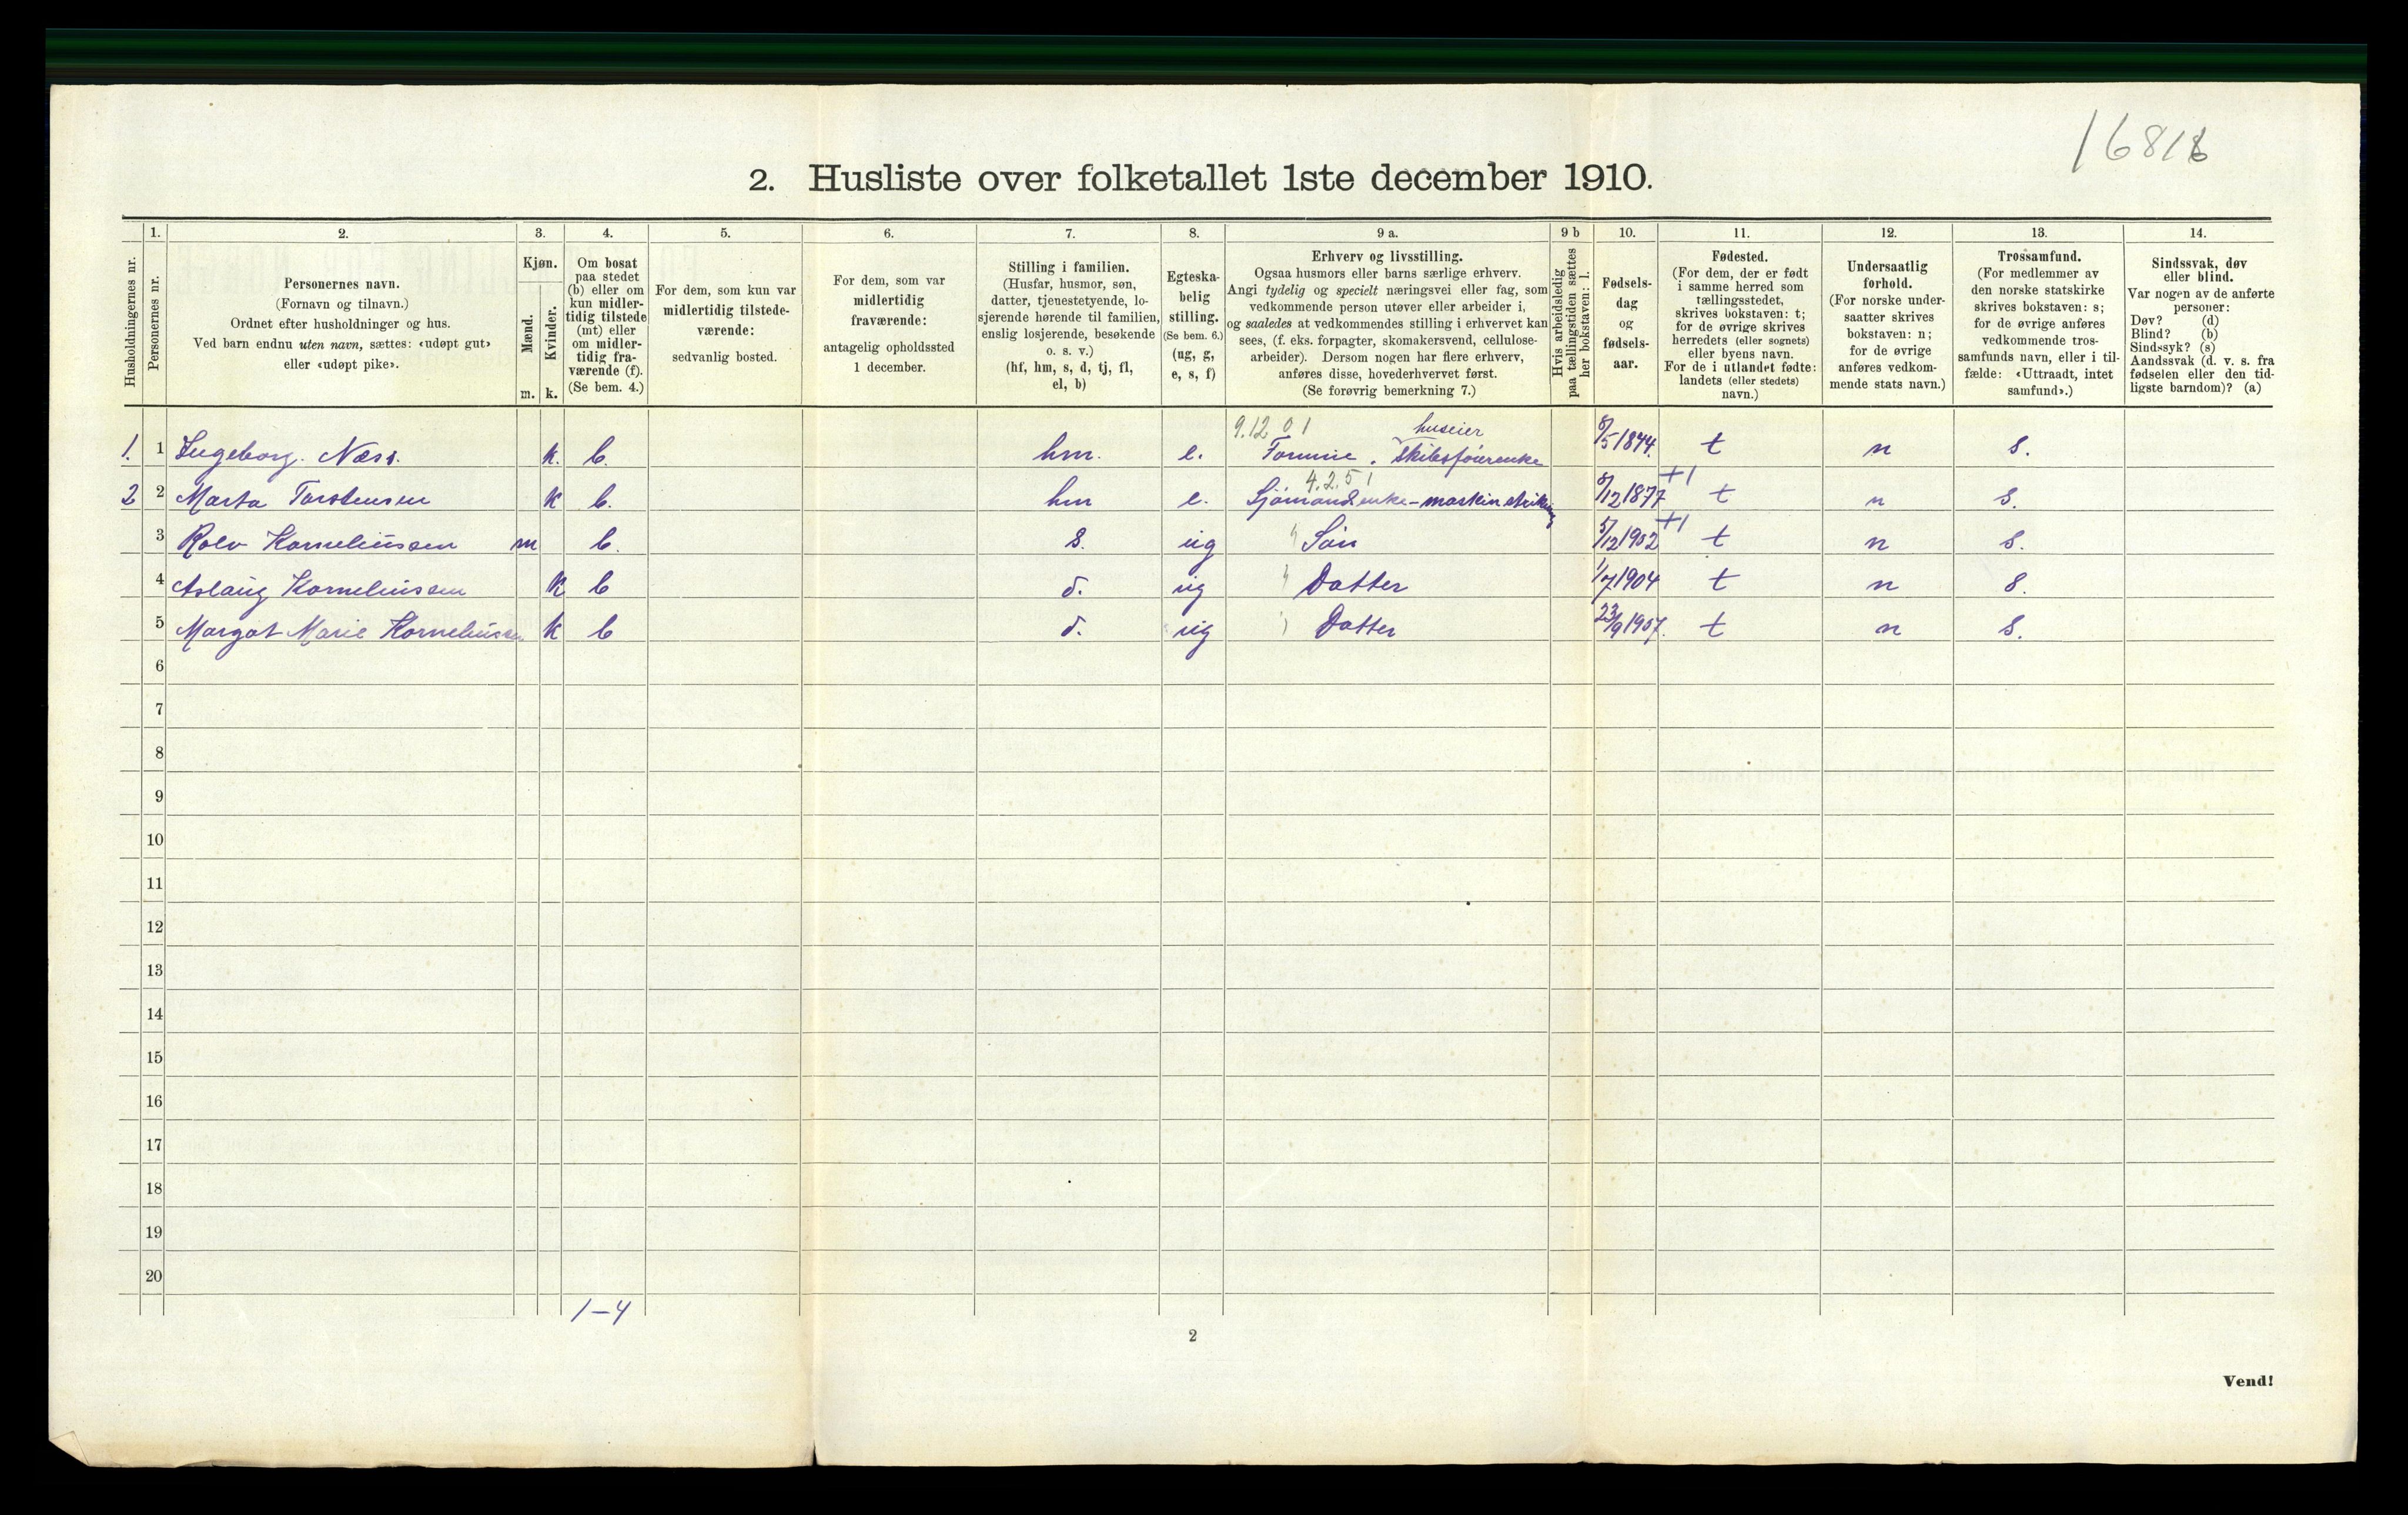 16816
2. Husliste over folketallet 1ste december 1910.
Husholdningernes nr.
1.
Personernes nr.
2.
Personernes navn.
(Fornavn og tilnavn.)
Ordnet efter husholdninger og hus.
Ved barn endnu uten navn, sættes: «udøpt gut»
eller «udøpt pike».
3.
Kjøn.
Mænd.
Kvinder.
m. k.
4.
Om bosat
paa stedet
(b) eller om
kun midler-
tidig tilstede
(mt) eller
om midler-
tidig fra-
værende (f).
(Se bem. 4.)
5.
For dem, som kun var
midlertidig tilstede-
værende:
sedvanlig bosted.
6.
For dem, som var
midlertidig
fraværende:
antagelig opholdssted
1 december.
7.
Stilling i familien.
(Husfar, husmor, søn,
datter, tjenestetyende, lo-
sjerende hørende til familien,
enslig losjerende, besøkende
o. s. v.)
(hf, hm, s, d, tj, fl,
el, b)
8.
Egteska-
belig
stilling.
(Se bem. 6.)
(ug, g,
e, s, f)
9 a.
Erhverv og livsstilling.
Ogsaa husmors eller barns særlige erhverv.
Angi tydelig og specielt næringsvei eller fag, som
vedkommende person utøver eller arbeider i,
og saaledes at vedkommendes stilling i erhvervet kan
sees, (f. eks. forpagter, skomakersvend, cellulose-
arbeider). Dersom nogen har flere erhverv,
anføres disse, hovederhvervet først.
(Se forøvrig bemerkning 7.)
9 b
Hvis arbeidsledig
paa tællingstiden sættes
her bokstaven: l.
10.
Fødsels-
dag
og
fødsels-
aar.
11.
Fødested.
(For dem, der er født
i samme herred som
tællingsstedet,
skrives bokstaven: t;
for de øvrige skrives
herredets (eller sognets)
eller byens navn.
For de i utlandet fødte:
landets (eller stedets)
navn.)
12.
Undersaatlig
forhold.
(For norske under-
saatter skrives
bokstaven: n;
for de øvrige
anføres vedkom-
mende stats navn.)
13.
Trossamfund.
(For medlemmer av
den norske statskirke
skrives bokstaven: s;
for de øvrige anføres
vedkommende tros-
samfunds navn, eller i til-
fælde: «Uttraadt, intet
samfund».)
14.
Sindssvak, døv
eller blind.
Var nogen av de anførte
personer:
Døv? (d)
Blind? (b)
Sindssyk? (s)
Aandssvak (d. v. s. fra
fødselen eller den tid-
ligste barndom)? (a)
9.12 01 huseier
1. 1 Ingeborg. Næss. k. b. hm. e. Formue. Skibsføierenke 8/5 1874. t n s.
4.2.51 +1
2 2 Marta Torstensen k b. hm e. Sjømandsenke - maskinstrikning 8/12 1877 t n s.
+1
3 Rolv Korneliussen m b. s. ug Søn 5/12 1902 t n s.
4 Aslaug Korneliussen k b d. ug Datter 1/7 1904 t n s.
5 Margot Marie Korneliussen k b d. ug Datter 23/9 1907. t n s.
6
7
8
9
10
11
12
13
14
15
16
17
18
19
20
1-4
2
Vend!